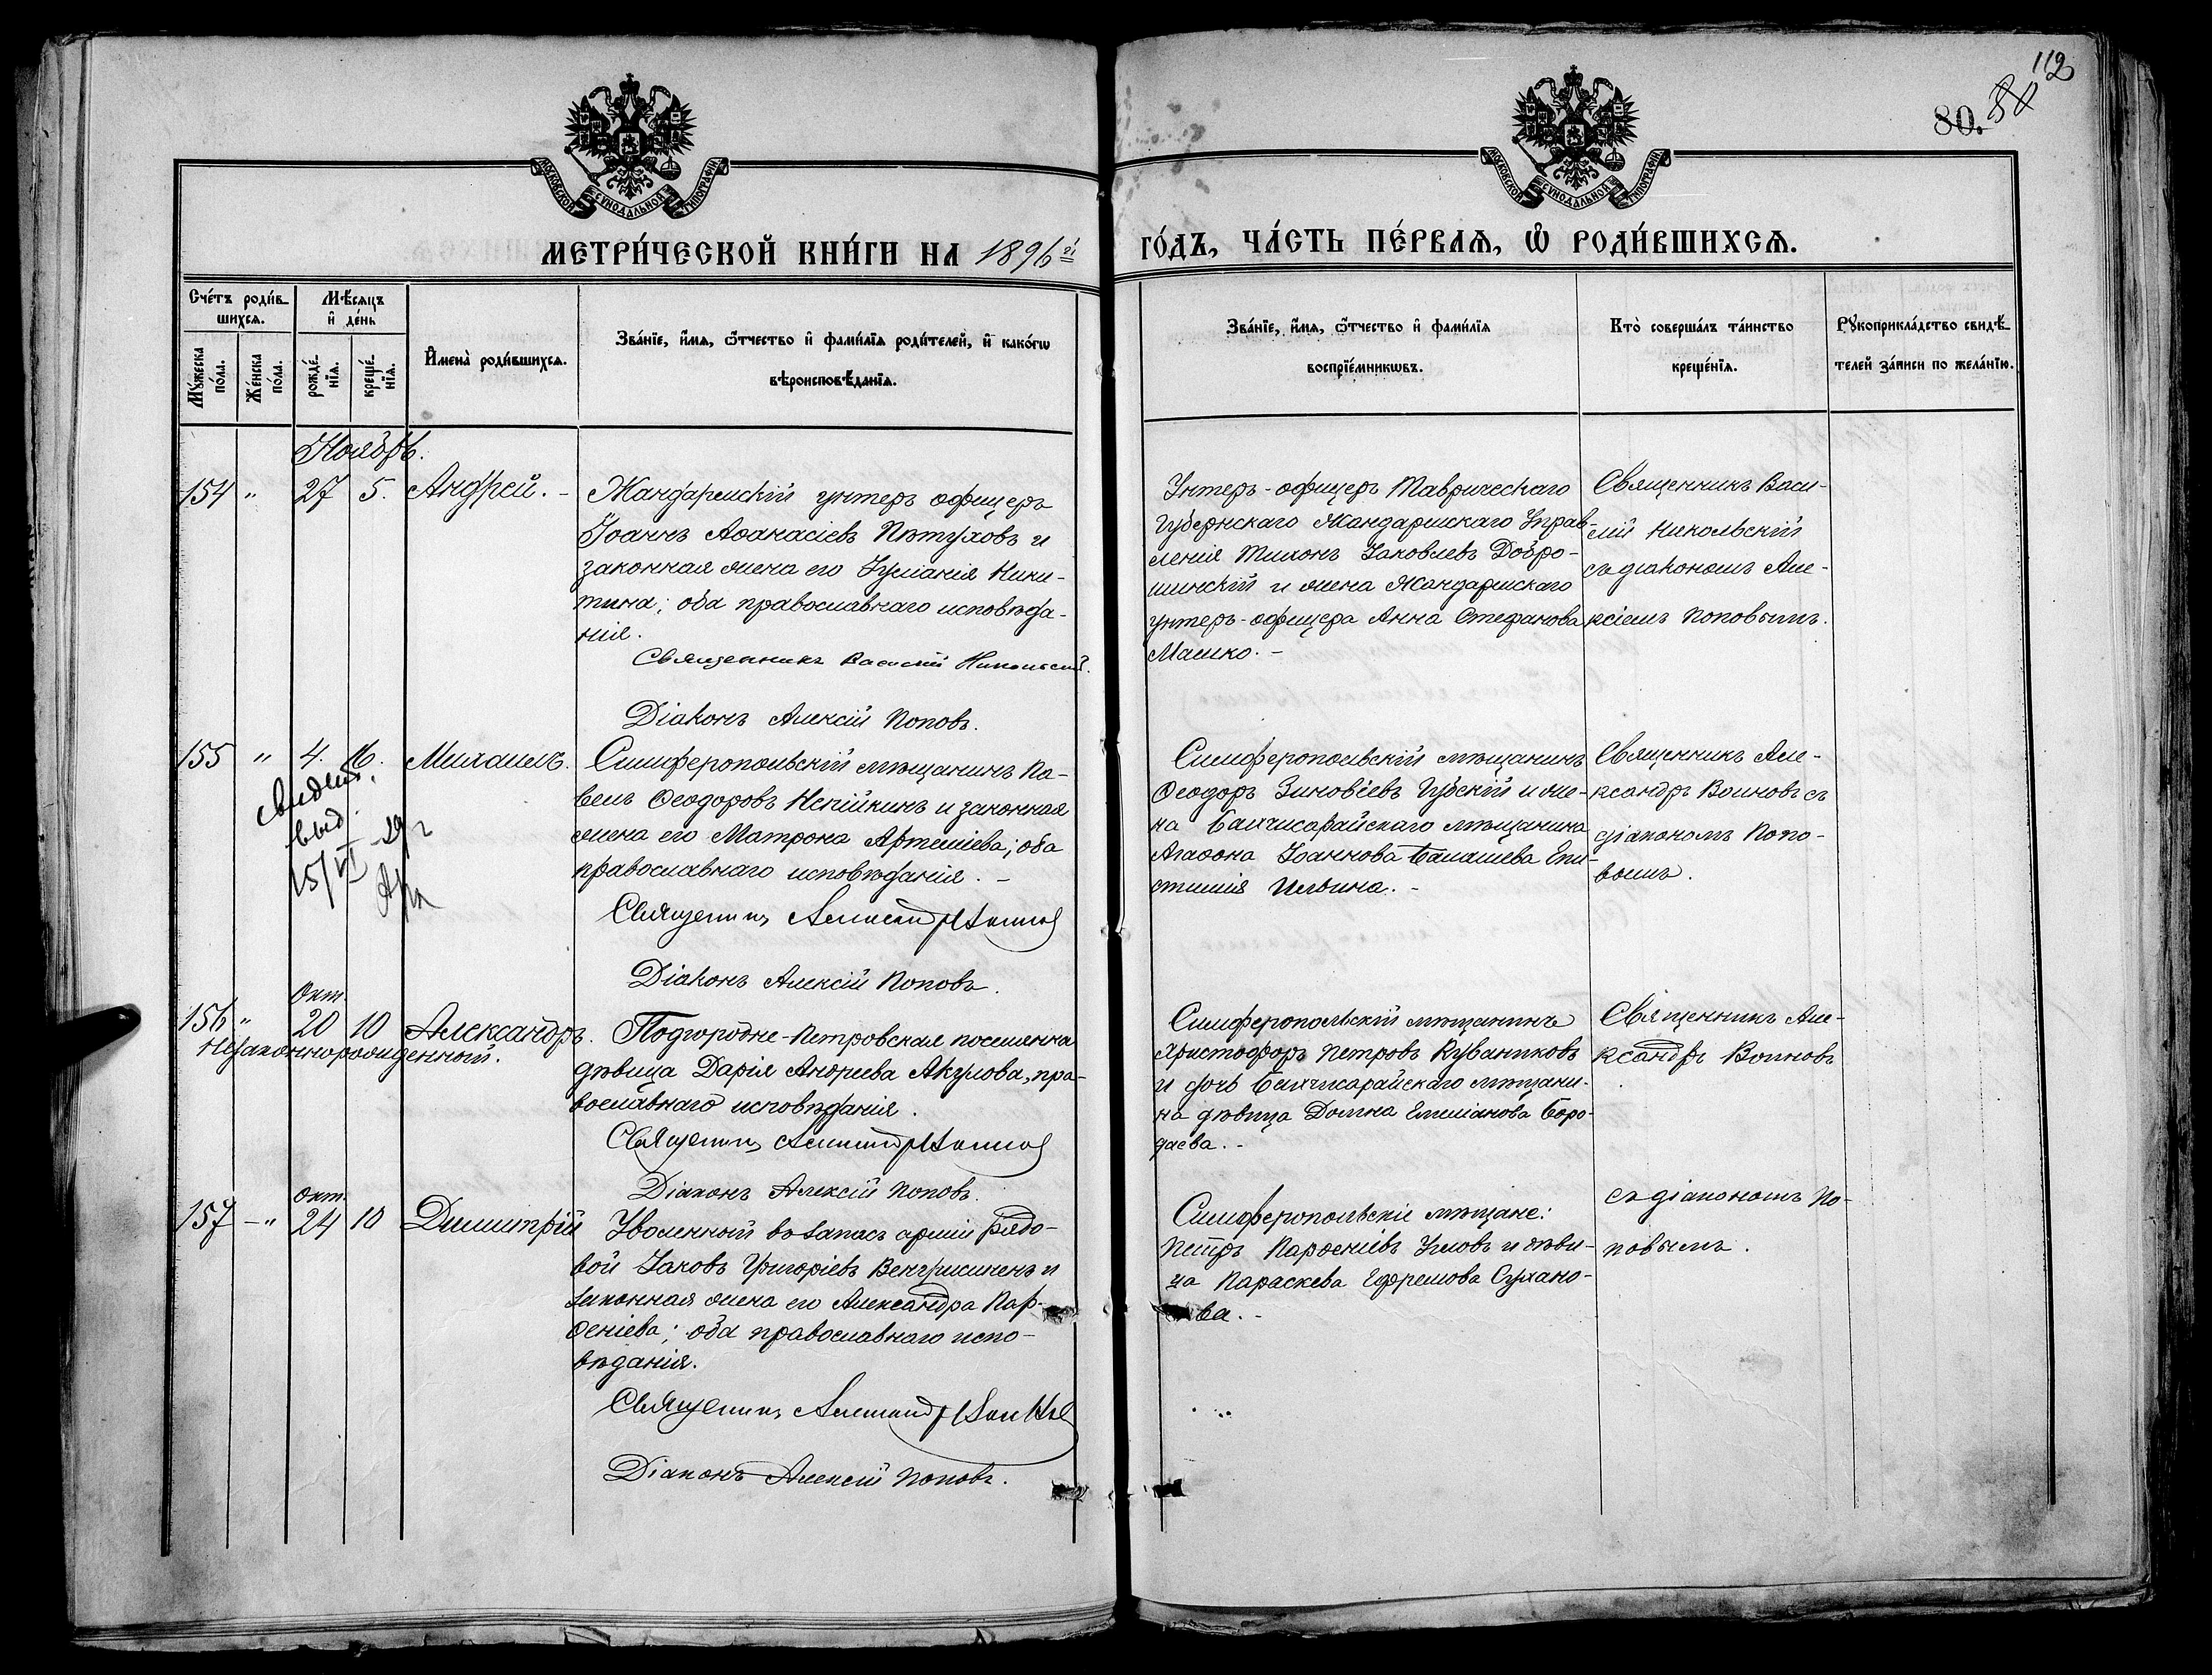 112
80.
МОСКОВСКОЙ СѴНОДАЛЬНОЙ ТИПОГРАФІИ
МОСКОВСКОЙ СѴНОДАЛЬНОЙ ТИПОГРАФІИ
МЕТРИ́ЧЕСКОЙ КНИ́ГИ НА 1896й
ГО́ДЪ, ЧА́СТЬ ПЕ́РВАѦ, Ѡ҆ РОДИ́ВШИХСѦ.
Сче́тъ роди́в-
шихсѧ.
Мѣ́сѧцъ
и҆ де́нь
Мꙋ́жеска
по́ла.
Же́нска
по́ла.
рожде́-
нїѧ.
креще́-
нїѧ.
И҆мена̀ роди́вшихсѧ.
Зва́нїе, и҆́мѧ, ѻ҆́тчество и҆ фами́лїѧ роди́телей, и҆ како́гѡ
вѣроисповѣ́данїѧ.
Зва́нїе, и҆́мѧ, ѻ҆́тчество и҆ фами́лїѧ
воспрїе́мникѡвъ.
Кто̀ соверша́лъ та́инство
креще́нїѧ.
Рꙋкоприкла́дство свидѣ́-
телей за́писи по жела́нїю.
Ноябрь.
154 " 27 5. Андрей. -
Жандармскій унтеръ офицеръ
Іоаннъ Аѳанасіевъ Пѣтуховъ и
законная жена его Іуліанія Ники-
тина; оба православнаго исповѣда-
нія.
Священникъ Василій Никольскій.
Діаконъ Алексій Поповъ.
Унтеръ-офицеръ Таврическаго
Губернскаго Жандармскаго Управ-
ленія Тихонъ Іаковлевъ Добро-
шинскій и жена Жандармскаго
унтеръ-офицера Анна Стефанова
Машко. -
Священникъ Васи-
лій Никольскій
съ діакономъ Але-
ксіемъ Поповымъ.
155 " 4. 16. Михаилъ.
свидет.
выд.
15/VI -29 г
Симферопольскій мѣщанинъ Па-
велъ Ѳеодоровъ и законная
жена его Матрона Артеміева; оба
православнаго исповѣданія. -
Священникъ Александръ Воиновъ
Діаконъ Алексій Поповъ.
Симферопольскій мѣщанинъ
Ѳеодоръ Зиновіевъ Губскій и же-
на Бахчисарайскаго мѣщанина
Агаѳона Іоаннова Балашева Епи-
стимія Ильина. -
Священникъ Але-
ксандръ Воиновъ съ
діакономъ Попо-
вымъ.
Окт.
156 " 20 10 Александръ.
Незаконнорожденный.
Подгородне-Петровская поселянка
дѣвица Дарія Андреева Акулова, пра-
вославнаго исповѣданія.
Священникъ Александръ Воиновъ
Діаконъ Алексій Поповъ.
Симферопольскій мѣщанинъ
Христофоръ Петровъ Кубаниковъ
и дочь Бахчисарайскаго мѣщани-
на дѣвица Домна Емиліанова Боро-
даева. -
Священникъ Але-
ксандръ Воиновъ
съ діакономъ По-
повымъ.
Окт.
157 - " 24 10 Димитрій
Уволенный въ запасъ арміи рядо-
вой Іаковъ Григоріевъ и
законная жена его Александра Пар-
ѳеніева; оба православнаго испо-
вѣданія.
Священникъ Александръ Воиновъ
Діаконъ Алексій Поповъ.
Симферопольскіе мѣщане:
Петръ Парѳеніевъ и дѣви-
ца Параскева Ефремова Сухано-
ва. -